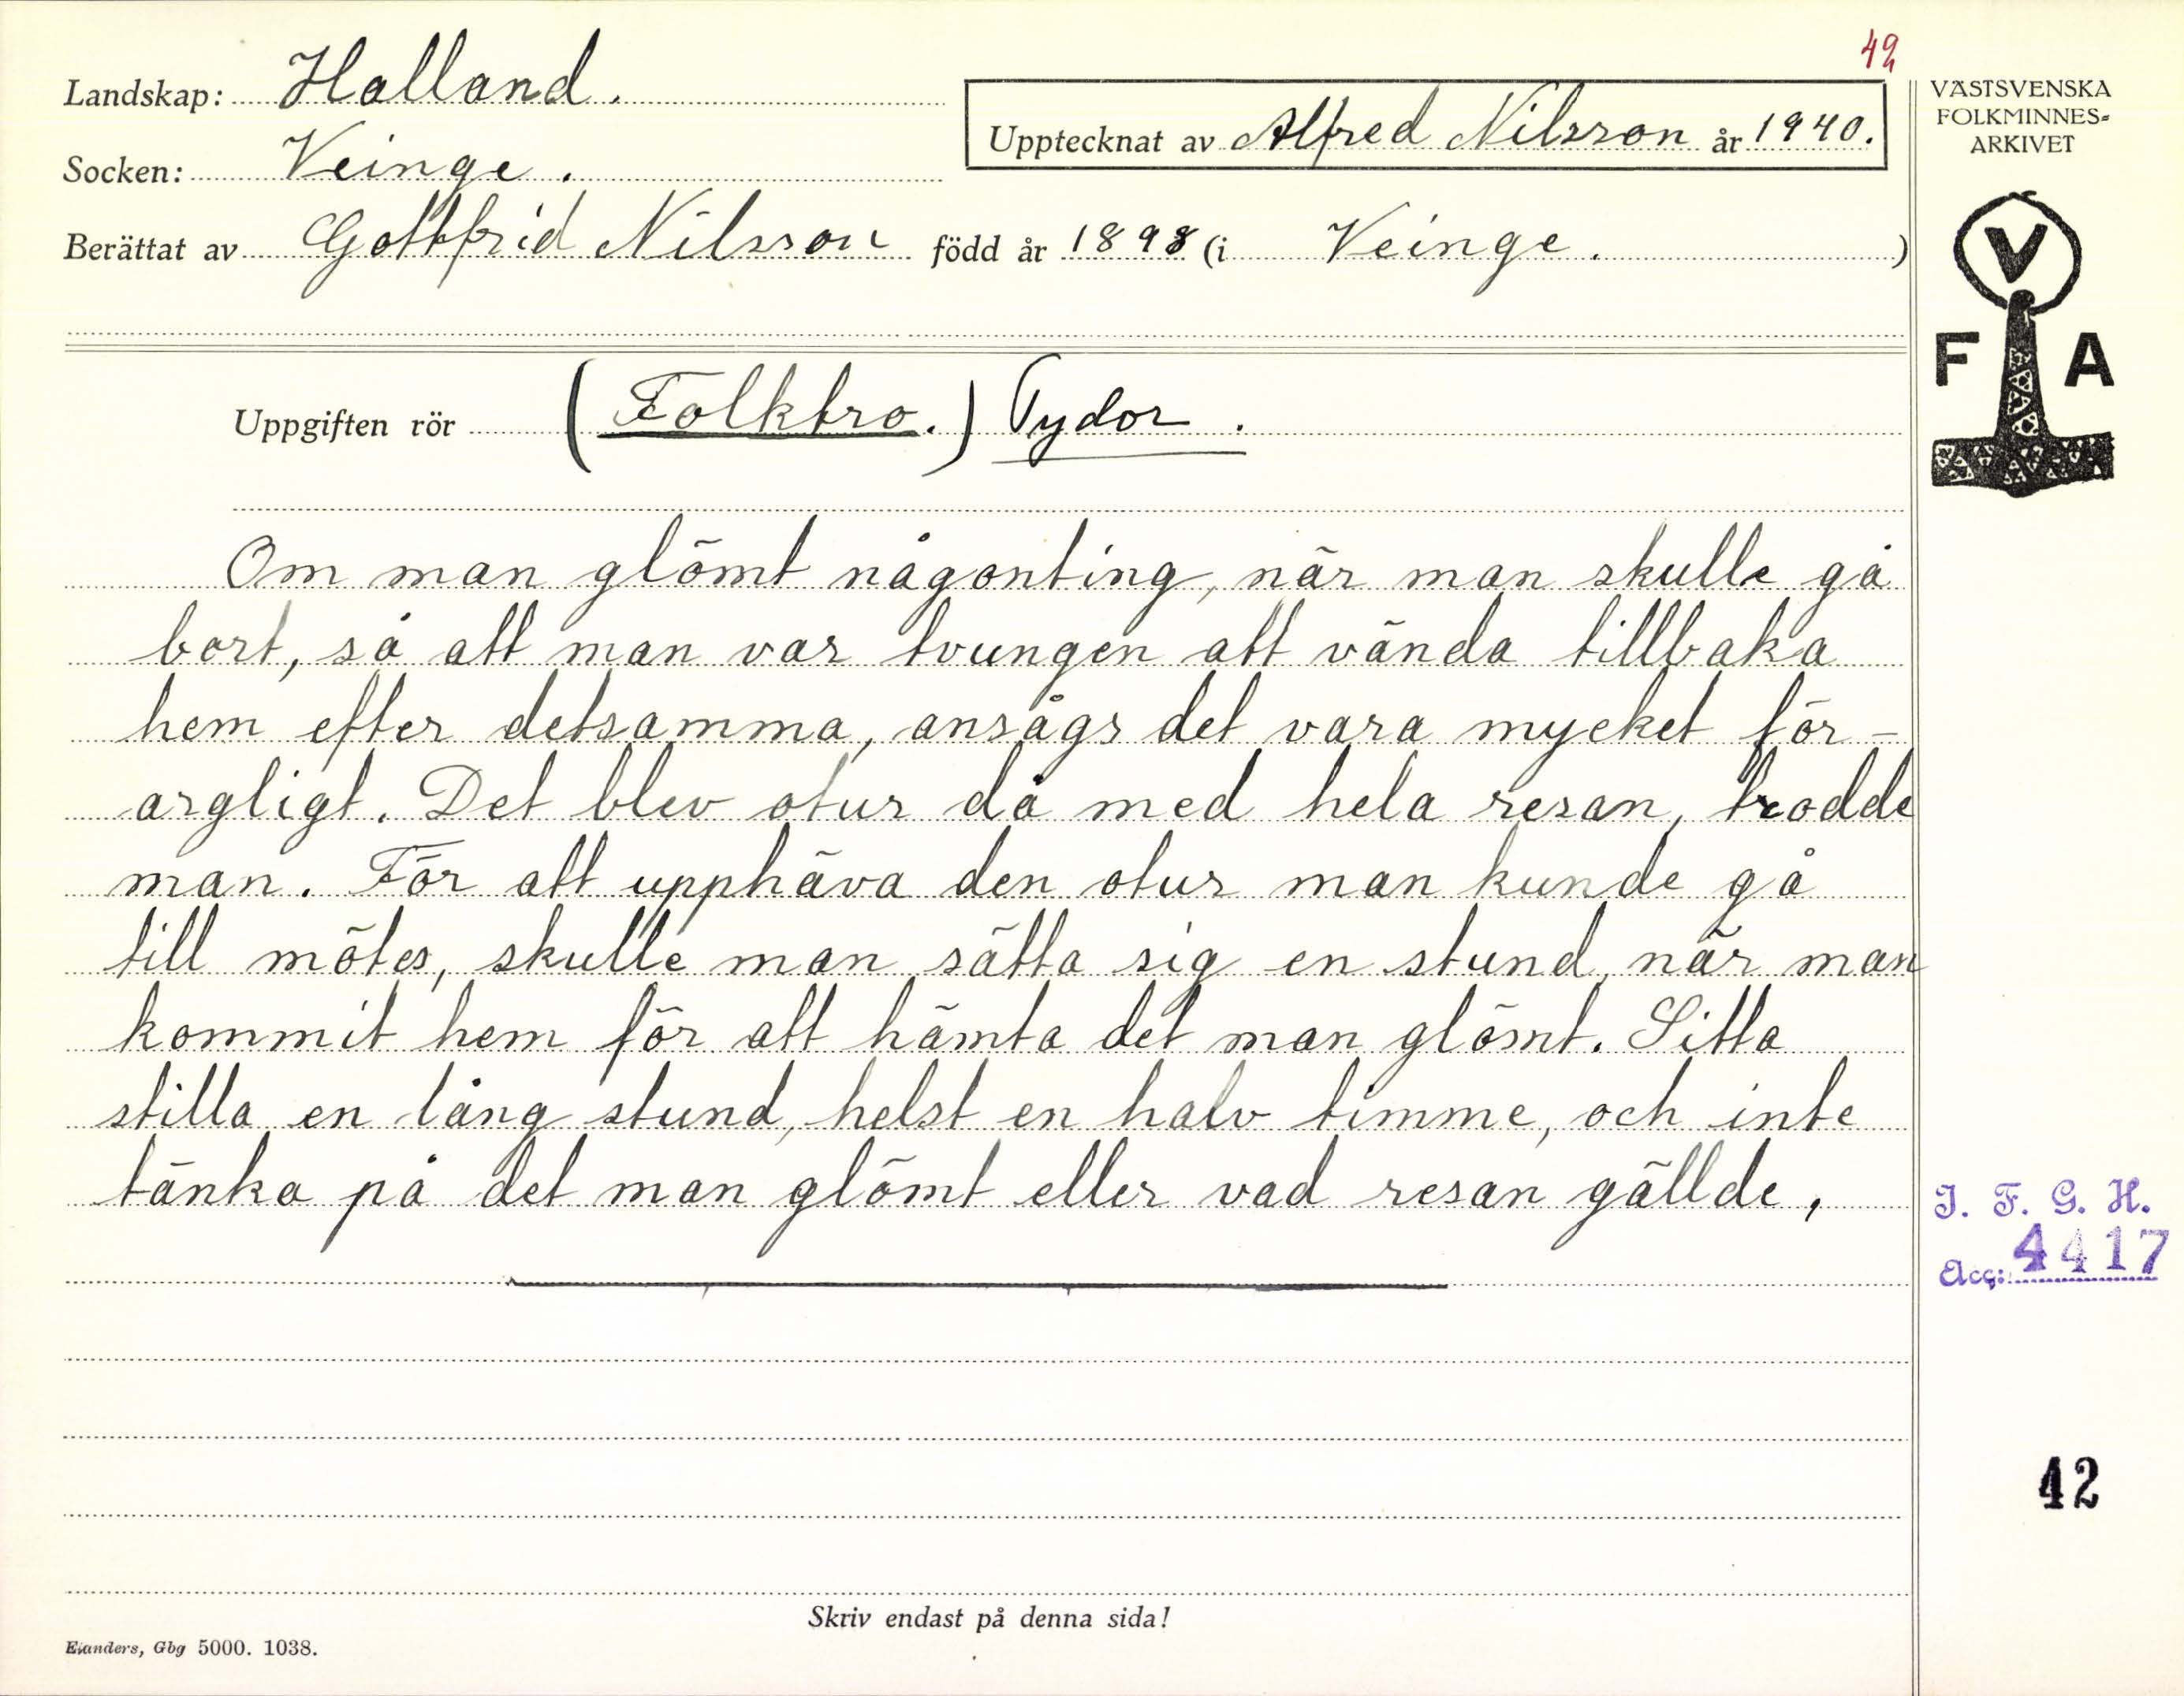 42
Landskap: Halland.
Upptecknat av Alfred Nilsson år 1940.
Socken: Veinge.
Berättat av Gottfrid Nilsson född år 1898 (i Veinge.)
VÄSTSVENSKA
FOLKMINNES-
ARKIVET
V
F A
Uppgiften rör (Folktro.) Tydor.
Om man glömt någonting, när man skulle gå
bort, så att man var tvungen att vända tillbaka
hem efter detsamma, ansågs det vara mycket för-
argligt. Det blev otur då med hela resan, trodde
man. För att upphäva den otur man kunde gå
till mötes, skulle man sätta sig en stund, när man
kommit hem för att hämta det man glömt. Sitta
stilla en lång stund, helst en halv timme, och inte
tänka på det man glömt eller vad resan gällde,
I. F. G. H.
Acc: 4417
42
Skriv endast på denna sida!
Elanders, Gbg 5000. 1038.